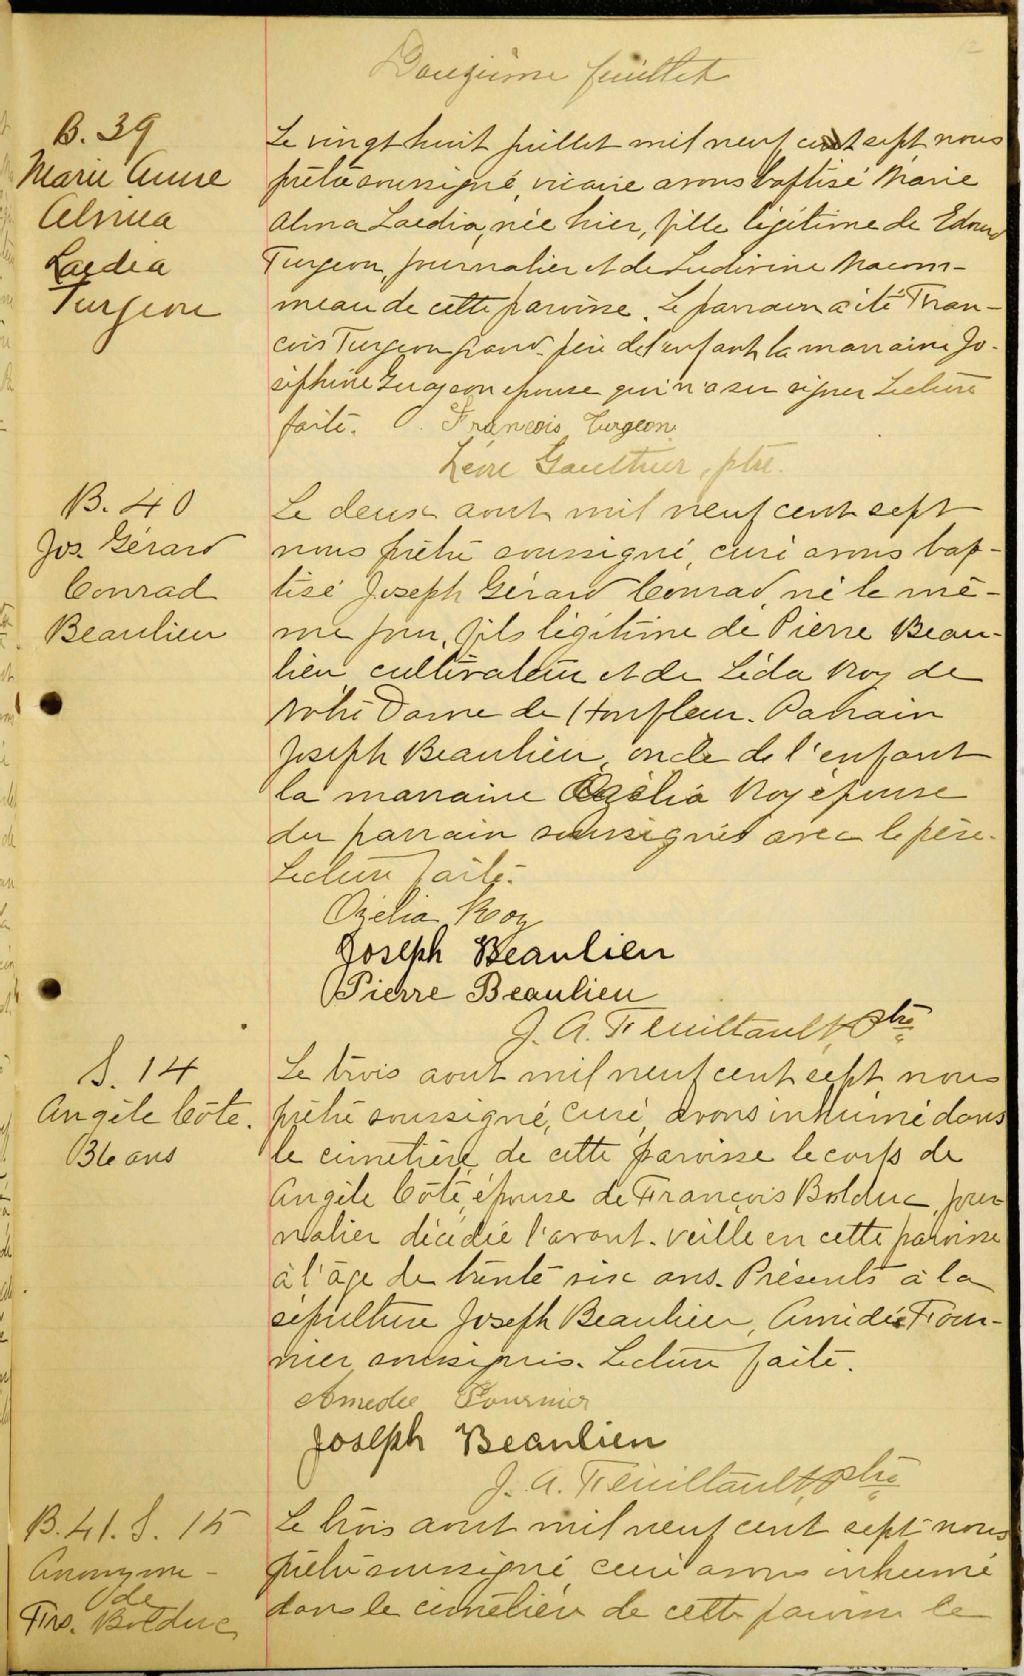 Douzième feuillet
B. 39
Marie Anne
Almea
Laedia
Turgeon
Le vingt huit juillet mil neuf cent sept nous
prêtre soussigné, vicaire avons baptisé Marie
Alma Laedia, née hier, fille légitime de Edouard
Turgeon, journalier et de Ludivine Nacom-
meau de cette paroisse. Le parrain a été Fran-
çois Turgeon grand-père de l'enfant la marraine Jo-
séphine épouse qui n'a su signer Lecture
faite.
François Turgeon
Léon Gauthier, ptre.
B. 40
Jos. Gérard
Conrad
Beaulieu
Le deux aout mil neuf cent sept
nous prêtre soussigné, curé avons bap-
tisé Joseph Gérard Conrad, né le mê-
me jour, fils légitime de Pierre Beau-
lieu, cultivateur et de Léda Roy de
Notre Dame de Honfleur. Parrain
Joseph Beaulieu, oncle de l'enfant
la marraine Ozélia Roy épouse
du parrain soussignés avec le père.
Lecture faite.
Ozélia Roy
Joseph Beaulieu
Pierre Beaulieu
J. A. Feuiltault, Ptre
S. 14
Angèle Côté.
36 ans
Le trois aout mil neuf cent sept nous
prêtre soussigné, curé, avons inhumé dans
le cimetière de cette paroisse le corps de
Angèle Côté, épouse de François Bolduc, jour-
nalier décédée l'avant-veille en cette paroisse
à l'âge de trente six ans. Présents à la
sépulture Joseph Beaulieu, Amédée Four-
nier, soussignés. Lecture faite.
Amedée Fournier
Joseph Beaulieu
J. A. Feuiltault, Ptre
B. 41. S. 15
Anonyme -
de
Frs. Bolduc
Le trois aout mil neuf cent sept nous
prêtre soussigné curé avons inhumé
dans le cimetière de cette paroisse le